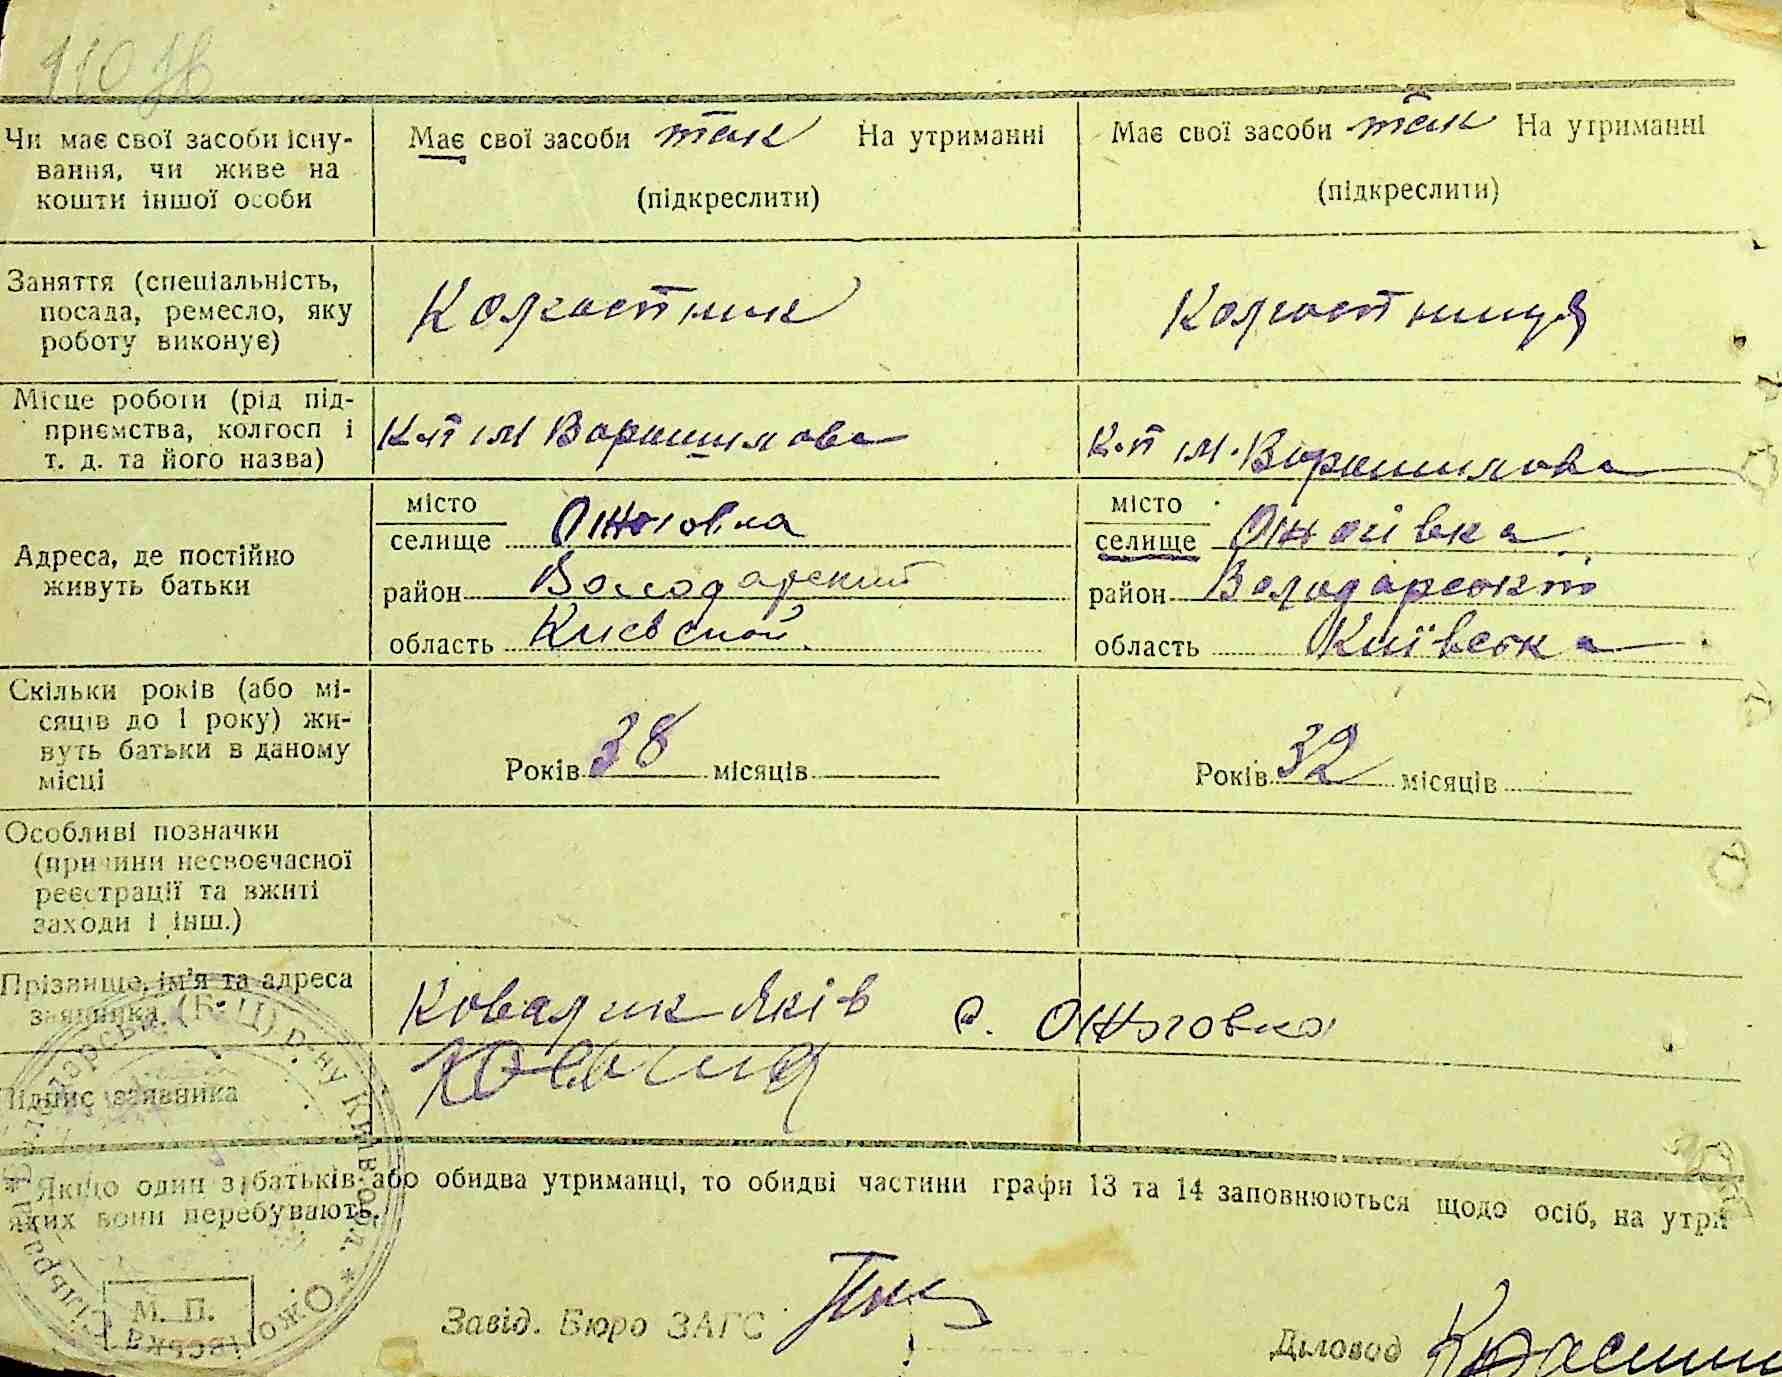 Чи має свої засоби існу-
вання, чи живе на
кошти іншої особи
Має свої засоби так На утриманні
(підкреслити)
Має свої засоби так На утриманні
(підкреслити)
Заняття (спеціальність,
посада, ремесло, яку
роботу виконує)
Колгостник
Колгостниця
Місце роботи (рід під-
приємства, колгосп і
т. д. та його назва)
К-п ім Ворошилова
К-п ім. Ворошилова
Адреса, де постійно
живуть батьки
місто
селище Ожоговка
район Володарский
область Киевской
місто
селище Ожогівка
район Володарський
область Київська
Скільки років (або мі-
сяців до 1 року) жи-
вуть батьки в даному
місці
Років 38 місяців
Років 32 місяців
Особливі позначки
(причини несвоєчасної
реєстрації та вжиті
заходи і інш.)
Прізвище, ім'я та адреса
заявника
Ковалик Яків с. Ожоговка
Підпис заявника
* Якщо один з батьків або обидва утриманці, то обидві частини графи 13 та 14 заповнюються щодо осіб, на утри
яких вони перебувають.
М. П.
Завід. Бюро ЗАГС
Діловод